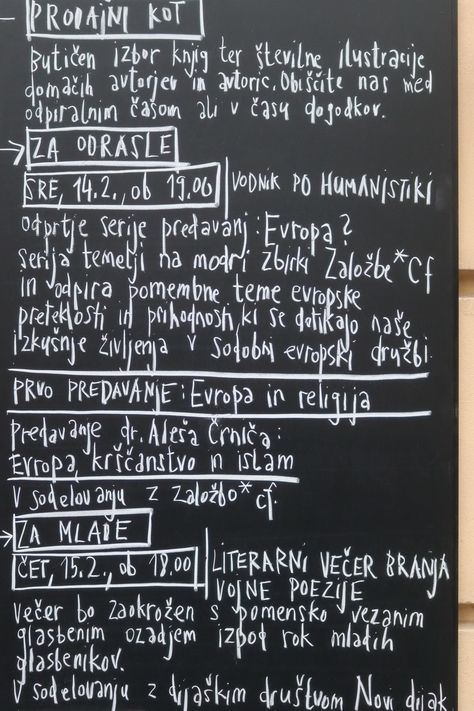 – PRODAJNI KOT
Butičen izbor knjig ter številne ilustracije
domačih avtorjev in avtoric. Obiščite nas med
odpiralnim časom ali v času dogodkov.
→ ZA ODRASLE
SRE, 14.2., ob 19.00 | VODNIK PO HUMANISTIKI
Odprtje serije predavanj: Evropa?
Serija temelji na modri Zbirki Založbe*Cf
in odpira pomembne teme evropske
preteklosti in prihodnosti, ki se dotikajo naše
izkušnje življenja v sodobni evropski družbi.
PRVO PREDAVANJE: Evropa in religija
Predavanje dr. Aleša Črniča:
Evropa, krščanstvo in islam
V sodelovanju z Založbo*cf.
→ ZA MLADE
ČET, 15.2., ob 18.00 | LITERARNI VEČER BRANJA
VOJNE POEZIJE
Večer bo zaokrožen s pomensko vezanim
glasbenim ozadjem izpod rok mladih
glasbenikov.
V sodelovanju z dijaškim društvom Novi dijak